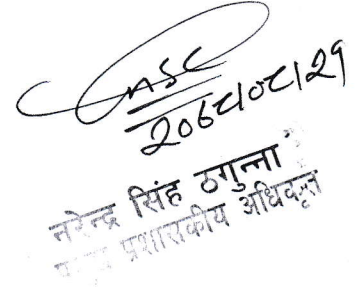 २०७८।०८।२१
नरेन्द्र सिंह ठगुन्ना
प्रशासकीय अधिकृत